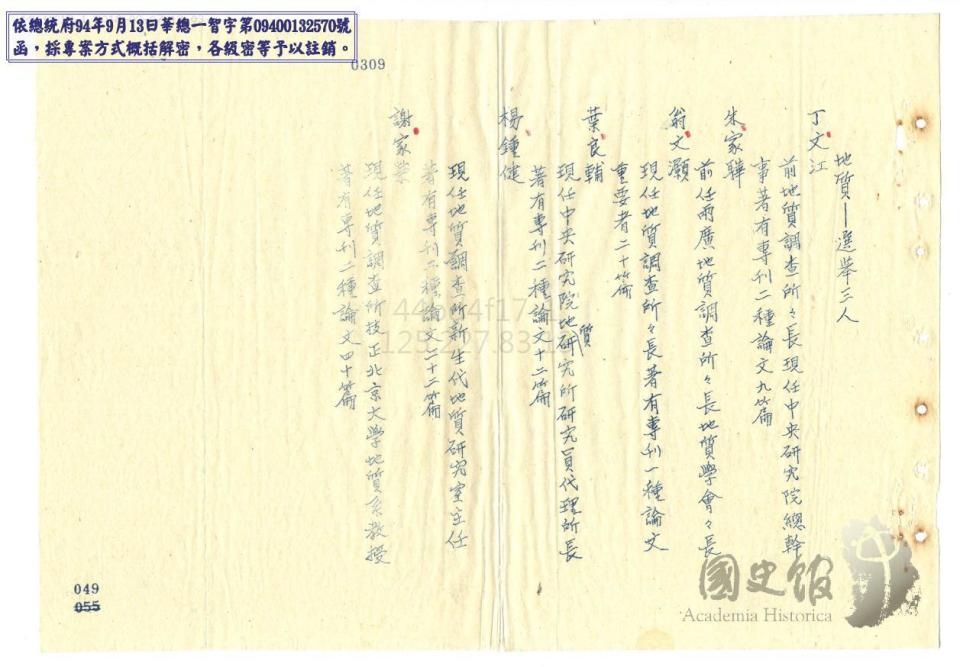 依總統府94年9月13日華總一智字第09400132570號
函，採專案方式概括解密，各級密等予以註銷。
0309
地質—選舉三人
丁文江
前地質調查所々長現任中央研究院總幹
事著有專刊二種論文九篇
朱家驊
前任兩廣地質調查所々長地質學會々長
翁文灝
現任地質調查所々長著有專刊一種論文
重要者二十篇
葉良輔
現任中央研究院地質研究所研究員代理所長
著有專刊二種論文十二篇
楊鍾健
現任地質調查所新生代地質研究室主任
著有專刊六種論文二十二篇
謝家榮
現任地質調查所技正北京大學地質系教授
著有專刊二種論文四十篇
049
055
國史館
Academia Historica